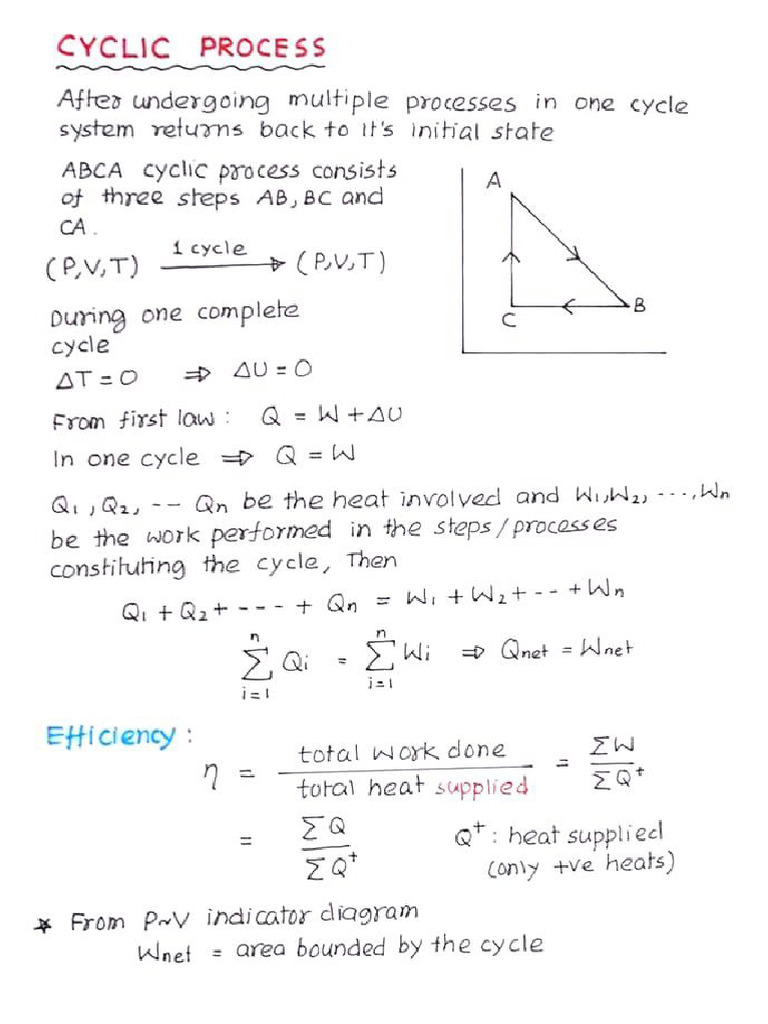 CYCLIC PROCESS
After undergoing multiple processes in one cycle
system returns back to it's initial state
ABCA cyclic process consists
of three steps AB, BC and
CA.
(P,V,T) 1 cycle → (P,V,T)
A
B
C
During one complete
cycle
ΔT = 0 ⇒ ΔU = 0
From first law : Q = W + ΔU
In one cycle ⇒ Q = W
Q₁, Q₂, -- Qn be the heat involved and W₁,W₂, ---,Wn
be the work performed in the steps/processes
constituting the cycle, Then
Q₁ + Q₂ + ---- + Qn = W₁ + W₂ + -- + Wn
n n
Σ Qi = Σ Wi ⇒ Qnet = Wnet
i=1 i=1
Efficiency :
η = total work done / total heat supplied = ΣW / ΣQ⁺
= ΣQ / ΣQ⁺
Q⁺ : heat supplied
(only +ve heats)
* From P~V indicator diagram
Wnet = area bounded by the cycle